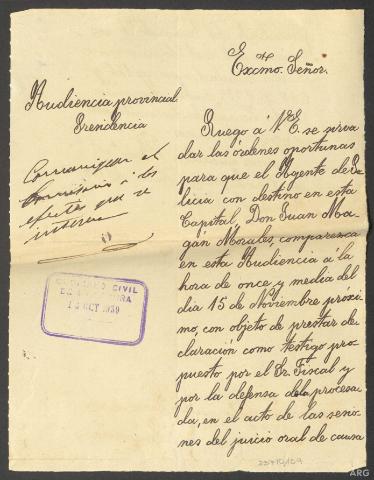 Excmo. Señor.
Audiencia provincial
Presidencia
Comuníquese al
Comisario a los
efectos que se
interesa
GOBIERNO CIVIL
OCT 1939
Ruego á V.E. se sirva
dar las órdenes oportunas
para que el Agente de Po-
licia con destino en esta
Capital, Don Juan Ma-
gán Morales, comparezca
en esta Audiencia á la
hora de once y media del
dia 15 de Noviembre próxi-
mo, con objeto de prestar de-
claración como testigo pro-
puesto por el Sr. Fiscal y
por la defensa de la procesa-
da, en el acto de las sesio-
nes del juicio oral de causa
ARG